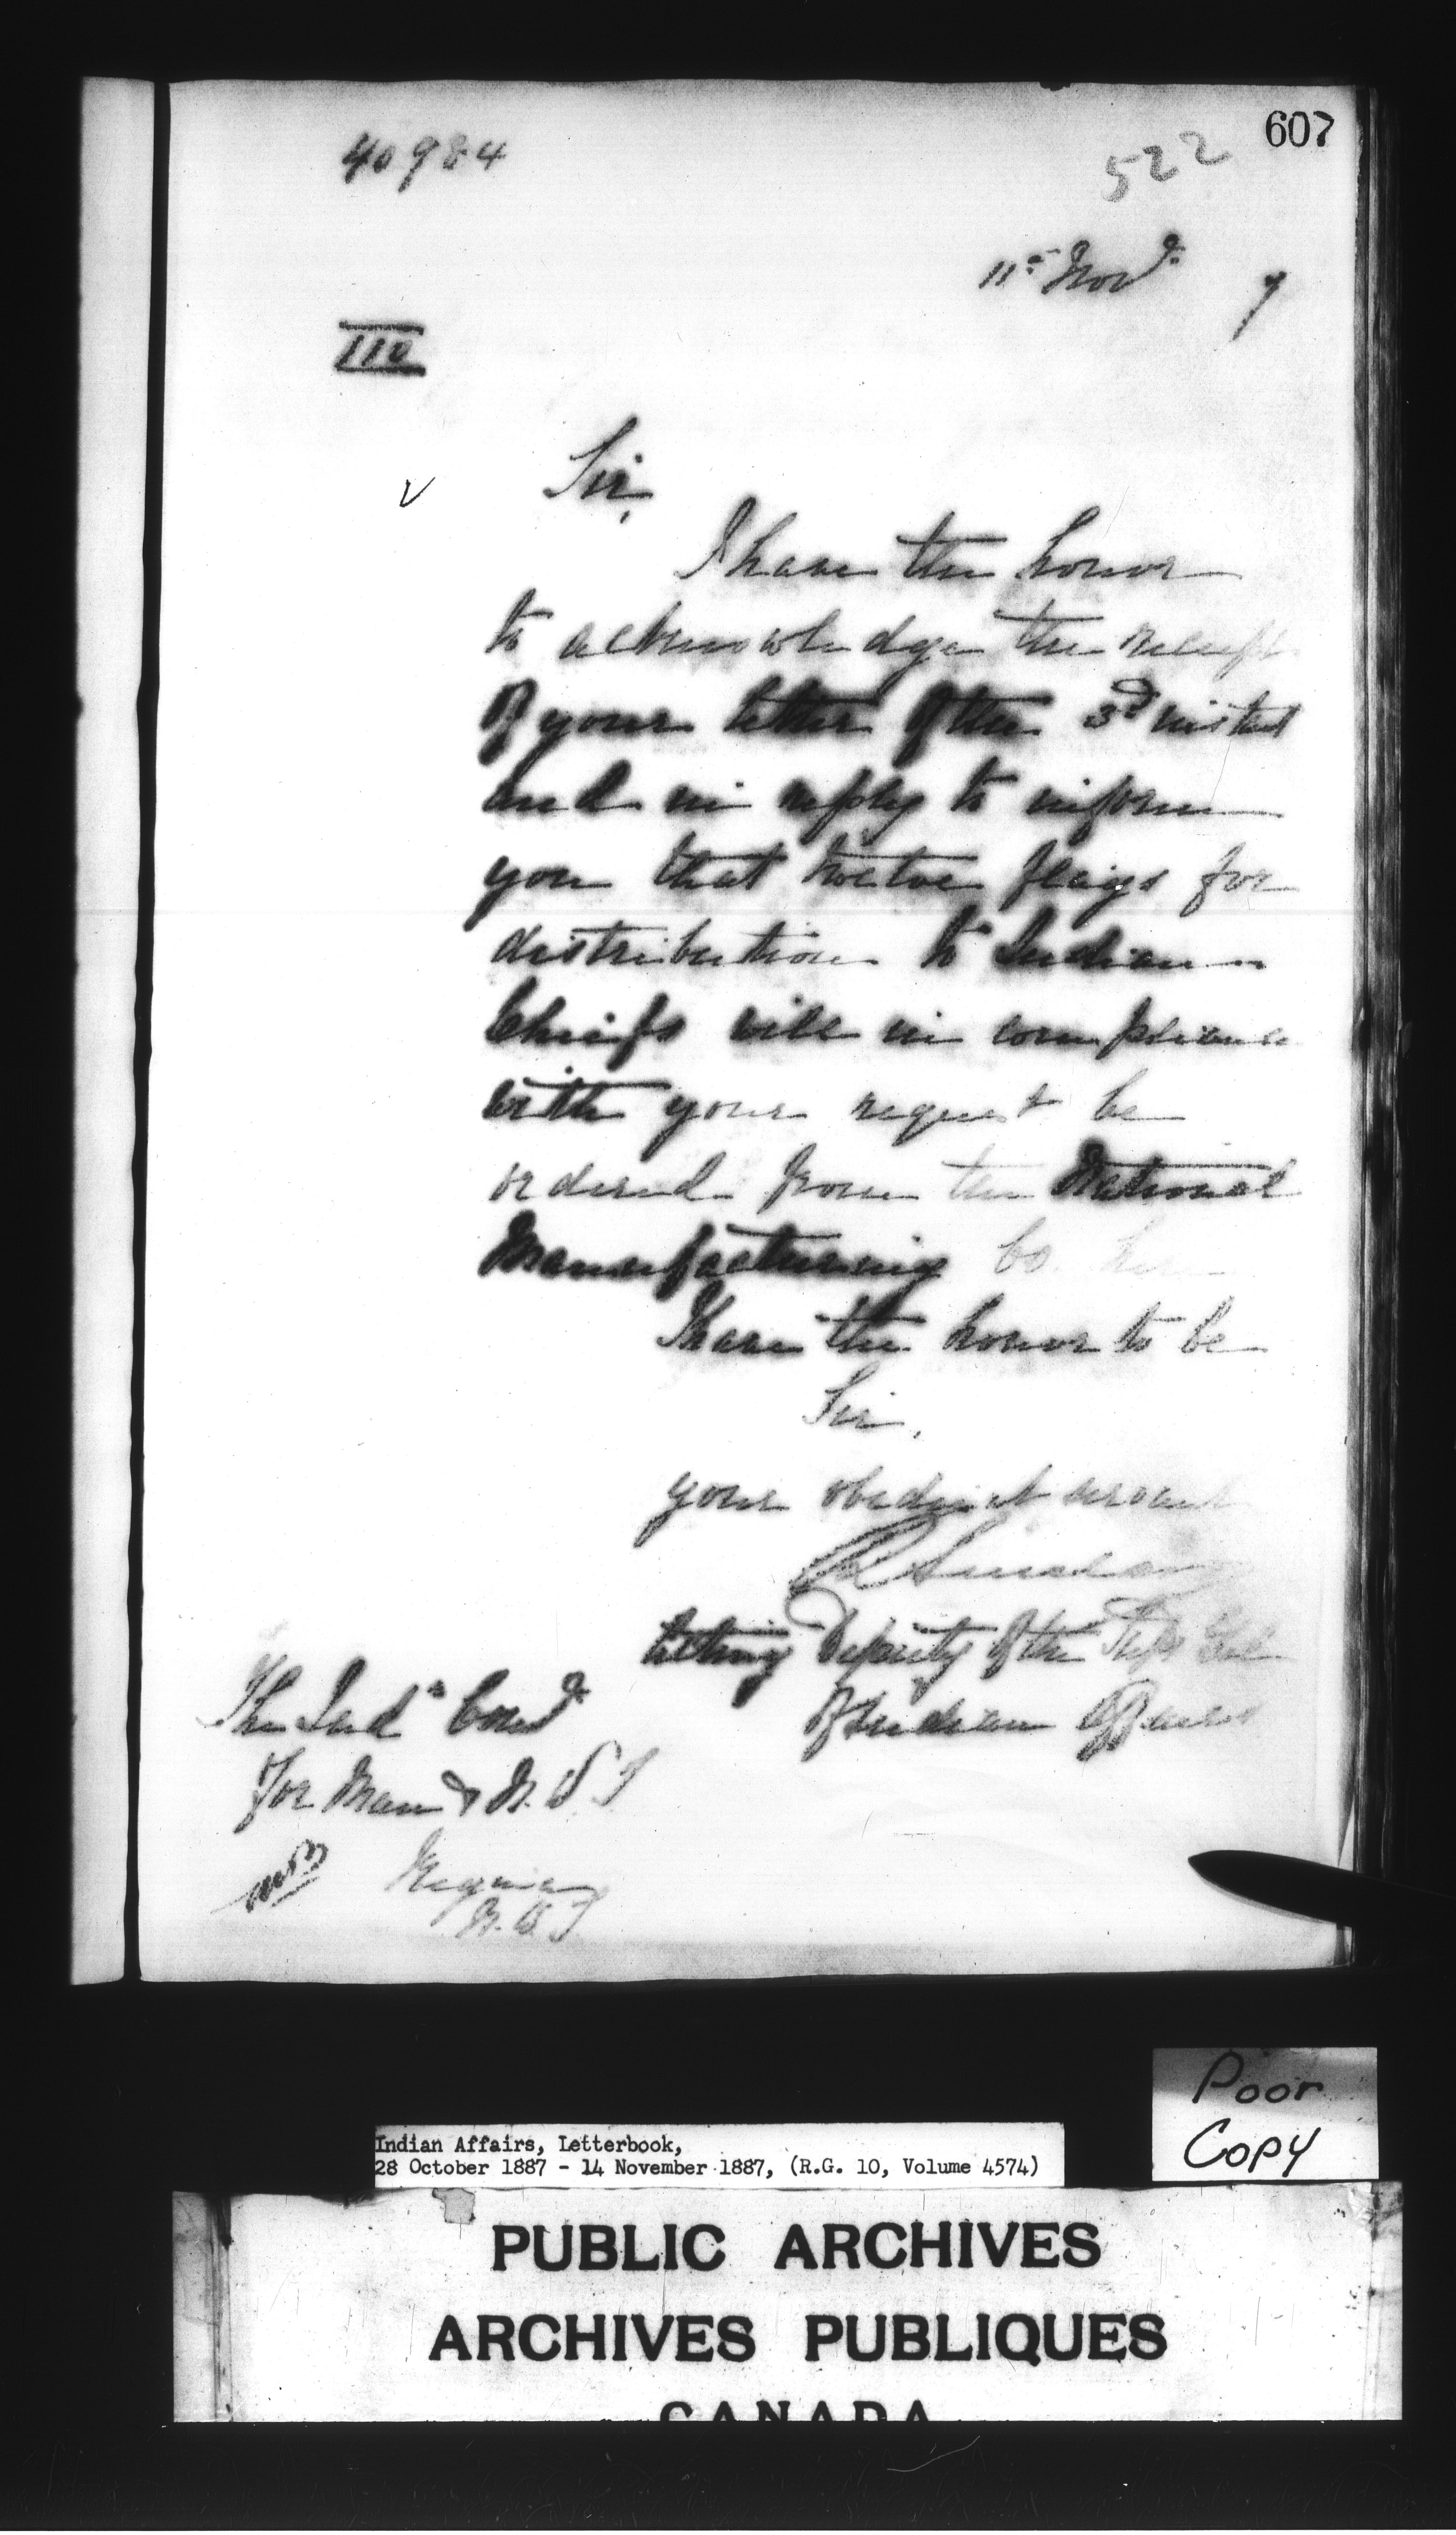 607
40984
522
11th Nov.r 7
110
V
Sir,
I have the honor
to acknowledge the receipt
of your letter of the 3rd instant
and in reply to inform
you that twelve flags for
distribution to Indian
Chiefs will in compliance
with your request be
ordered from the National
Manufacturing Co. here
I have the honor to be
Sir,
your obedient servant
R Sinclair
Acting Deputy of the Supt Genl
of Indian Affairs
The Indn Comr
for Man & N.W.T
Regina
N.W.T
Poor
Copy
Indian Affairs, Letterbook,
28 October 1887 - 14 November 1887, (R.G. 10, Volume 4574)
PUBLIC ARCHIVES
ARCHIVES PUBLIQUES
CANADA